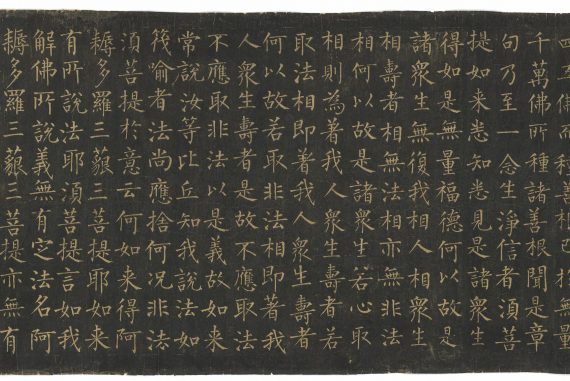 四五佛而種善根已於無量
千萬佛所種諸善根聞是章
句乃至一念生淨信者湏菩
提如来悉知悉見是諸衆生
得如是無量福德何以故是
諸衆生無復我相人相衆生
相壽者相無法相亦無非法
相何以故是諸衆生若心取
相則為著我人衆生壽者若
取法相即著我人衆生壽者
何以故若取非法相即著我
人衆生壽者是故不應取法
不應取非法以是義故如来
常說汝等比丘知我說法如
筏喻者法尚應捨何況非法
湏菩提於意云何如来得阿
耨多羅三藐三菩提耶如来
有所說法耶湏菩提言如我
解佛所說義無有定法名阿
耨多羅三藐三菩提亦無有